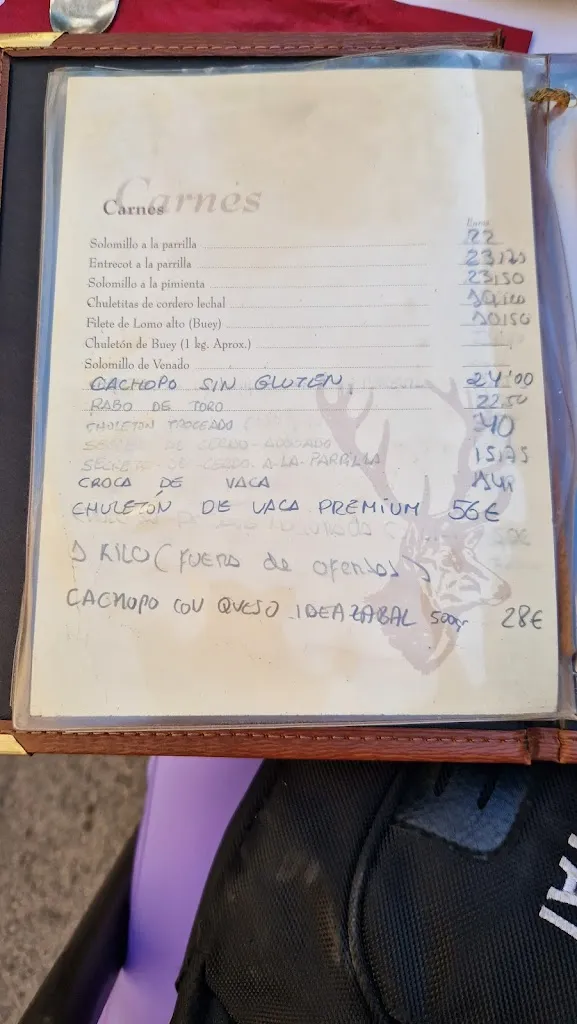 Carnés
Carnés
Euros
Solomillo a la parrilla 22
Entrecot a la parrilla
Solomillo a la pimienta 23,50
Chuletitas de cordero lechal
Filete de Lomo alto (Buey)
Chuletón de Buey (1 kg. Aprox.)
Solomillo de Venado
CACHOPO SIN GLUTEN 24'00
RABO DE TORO 22.50
CHULETON TROCEADO 40
SECRETO DE CERDO ADOBADO
SECRETO DE CERDO A LA PARRILLA 15,75
CROCA DE VACA
CHULETÓN DE VACA PREMIUM 56€
1 KILO (FUERA de ofertas)
CACHOPO CON QUESO IDEAZABAL 500gr 28€